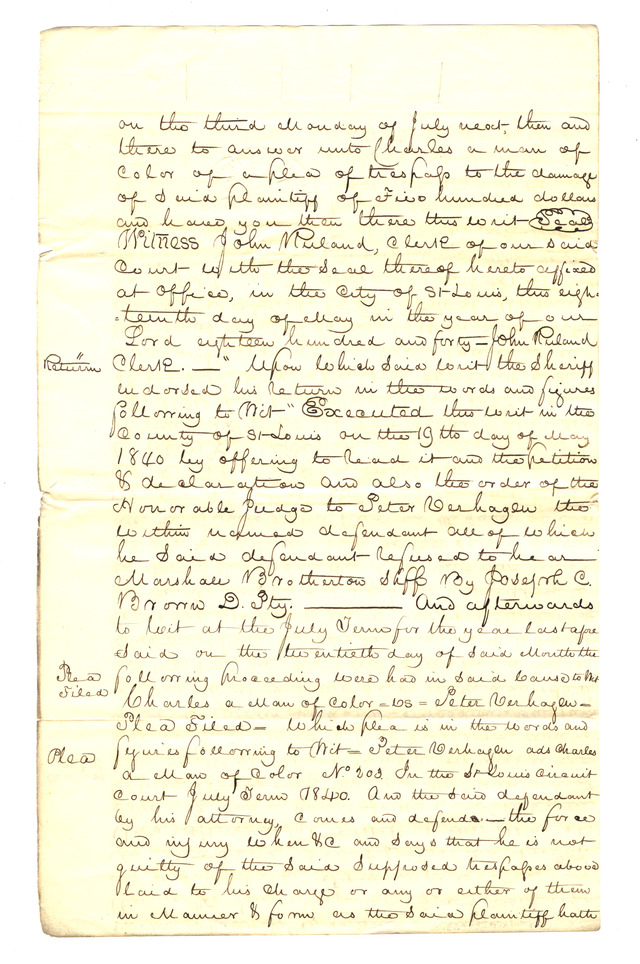 on the third Monday of July next, then and
there to answer unto Charles a man of
Color of a plea of trespass to the damage
of Said plaintiff of Five hundred dollars
and have you then there this writ Seal
Witness John Ruland, Clerk of our said
Court with the Seal thereof hereto affixed
at Office, in the City of St Louis, this eigh-
-teenth day of May in the year of our
Lord eighteen hundred and forty – John Ruland
Return Clerk. — " Upon which Said writ the Sheriff
indorsed his return in the words and figures
following to Wit " Executed this writ in the
County of St Louis on the 19th day of May
1840 by offering to read it and the petition
& declaration And also the order of the
Honorable Judge to Peter Verhagen the
within named defendant all of which
he Said defendant refused to hear
Marshall Brotherton Shff By Joseph C.
Brown D. Pty. ——— And afterwards
to Wit at the July Term for the year last afore
Said on the twentieth day of Said Month the
Plea Filed following proceeding were had in Said Cause to Wit
Charles a Man of Color = vs = Peter Verhagen =
Plea Filed = Which plea is in the words and
Plea figures following to Wit = Peter Verhagen ads Charles
a Man of Color No 203. In the St Louis Circuit
Court July Term 1840. And the Said defendant
by his attorney, Comes and defends – the force
and injury when &C and Says that he is not
guilty of the Said Supposed trespasses above
laid to his Charge or any or either of them
in Manner & form as the Said plaintiff hath